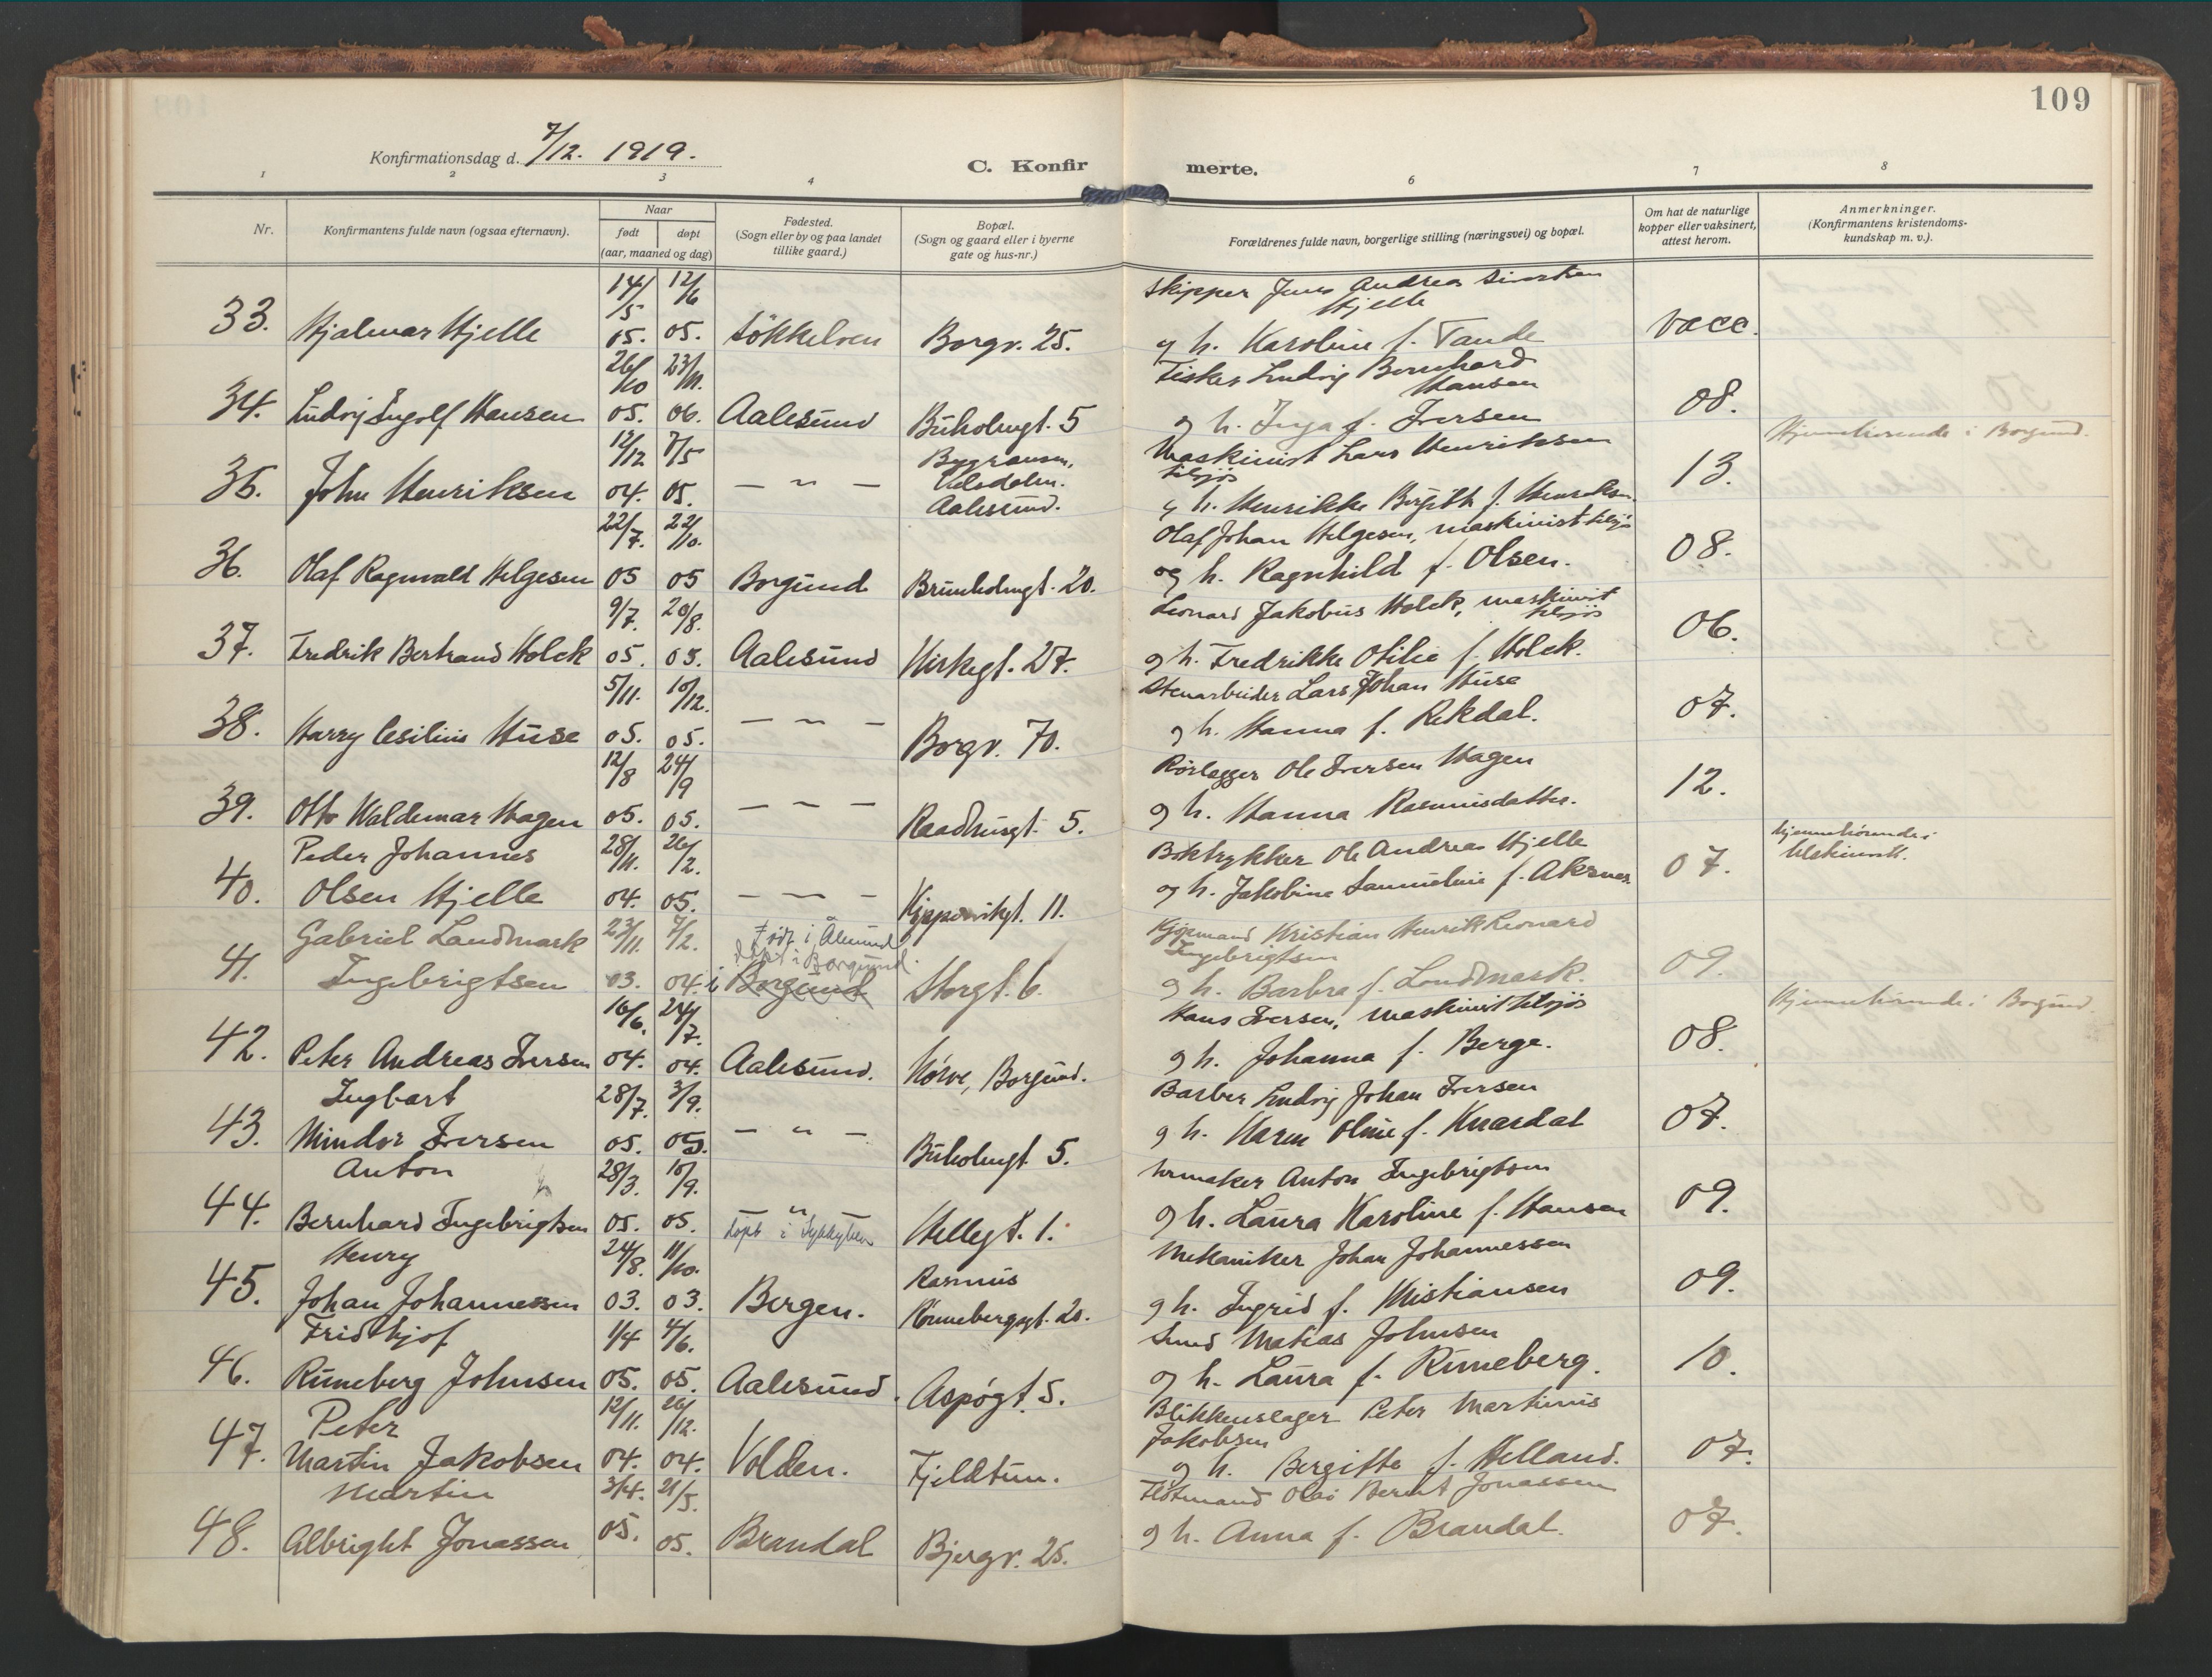 109
Konfirmationsdag d. 7/12. 1919.
C. Konfirmerte.
1 2 3 4 6 7 8
Nr.
Konfirmantens fulde navn (ogsaa efternavn).
Naar
født døpt
(aar, maaned og dag)
Fødested.
(Sogn eller by og paa landet
tillike gaard.)
Bopæl.
(Sogn og gaard eller i byerne
gate og hus-nr.)
Forældrenes fulde navn, borgerlige stilling (næringsvei) og bopæl.
Om hat de naturlige
kopper eller vaksinert,
attest herom.
Anmerkninger.
(Konfirmantens kristendoms-
kundskap m. v.).
14/5 12/6 Skipper Jens Andreas
Hjelle
33. Hjalmar Hjelle 05. 05. Søkkelven Borgv. 25. og h. Karoline f. Tande vacc.
26/10 23/11. Fisker Ludvig Bernhard
Hansen
34. Ludvig Ingolf Hansen 05. 06. Aalesund Buholmgt. 5 og h. Inga f. Iversen 08.
12/12 7/5 Maskinist Lars Henriksen Hjemmehørende i Borgund.
tilsjøs
35. John Henriksen 04. 05. — " — Aalesund. og h. Henrikke Bergith f. Henriksen 13.
22/7. 22/10. Olaf Johan Helgesen, maskinist tilsjøs
36. Olaf Ragnvald Helgesen 05 05 Borgund Brunholmgt. 20. og h. Ragnhild f. Olsen. 08.
9/7. 20/8. Leonard Jakobus Holck, maskinist
tilsjøs
37. Fredrik Bertrand Holck 05. 05. Aalesund Kirkegt. 27. og h. Fredrikke Otilie f. Holck. 06.
5/11. 10/12. Stenarbeider Lars Johan Huse
38. Harry Cesilius Huse 05. 05. — " — Borgv. 70. og h. Hanna f. Rekdal. 07.
12/8 24/9 Rørlegger Ole Iversen Hagen
39. Otto Waldemar Hagen 05. 05. — " — Raadhusgt. 5. og h. Hanna Rasmusdatter. 12.
Peder Johannes 28/11. 26/2. Boktrykker Ole Andreas Hjelle hjemmehørende i
40. Olsen Hjelle 04. 05. — " — Kipperviksgt. 11. og h. Jakobine Samueline f. Aksnes. 07.
Gabriel Landmark 23/11. 7/2. Født i Ålesund Kjøpmand Kristian Henrik Leonard
døpt i Borgund. Ingebrigtsen
41. Ingebrigtsen 03. 04. i Borgund Storgt. 6. og h. Barbra f. Landmark. 09.
16/6. 24/7. Hans Iversen, maskinist tilsjøs Hjemmehørende i Borgund.
42. Peter Andreas Iversen 04. 04. Aalesund. Nørve, Borgund. og h. Johanna f. Berge. 08.
Ingbart 28/7. 3/9. Barber Ludvig Johan Iversen
43. Mindor Iversen 05. 05. — " — Buholmgt. 5. og h. Karen Oline f. Knardal 07.
Anton 28/3. 10/9. Urmaker Anton Ingebrigtsen
44. Bernhard Ingebrigtsen 05. 05. — " — Hellegt. 1. og h. Laura Karoline f. Hansen 09.
døpt i Sykkylven
Henry 24/8. 11/10. Rasmus Mekaniker Johan Johannessen
45. Johan Johannessen 03. 03. Bergen. Rønnebergsgt. 20. og h. Ingrid f. Kristiansen 09.
Fridthjof 1/4 4/6. Smed Matias Johnsen
46. Runeberg Johnsen 05. 05. Aalesund. Aspøgt. 5. og h. Laura f. Runeberg. 10.
Peter 12/11. 26/12. Blikkenslager Peter Martinus
Jakobsen
47. Martin Jakobsen 04. 04. Volden. Fjeldtun. og h. Bergitte f. Helland. 07.
Martin 3/4. 21/5. Flotmand Olai Bernt Jonassen
48. Albright Jonassen 05. 05. Brandal Bjergv. 25. og h. Anna f. Brandal. 07.